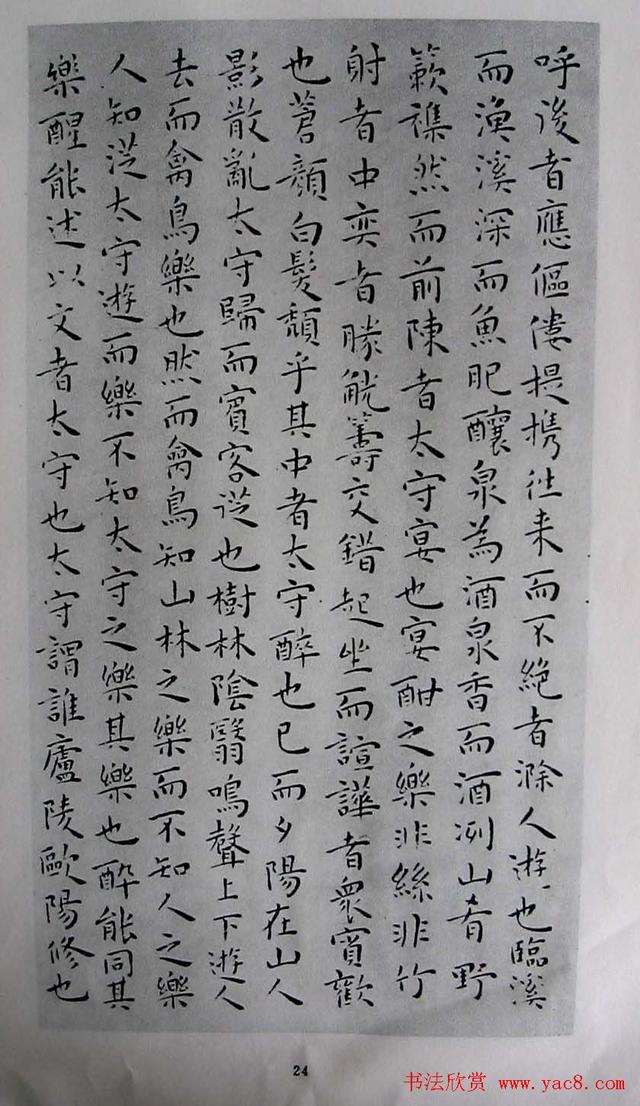 呼後者應傴僂提攜往来而不絶者滁人遊也臨溪
而漁溪深而魚肥釀泉為酒泉香而酒冽山肴野
簌襍然而前陳者太守宴也宴酣之樂非絲非竹
射者中奕者勝觥籌交錯起坐而諠譁者衆賓歡
也蒼顏白髮頹乎其中者太守醉也已而夕陽在山人
影散亂太守歸而賓客從也樹林陰翳鳴聲上下遊人
去而禽鳥樂也然而禽鳥知山林之樂而不知人之樂
人知從太守遊而樂不知太守之樂其樂也醉能同其
樂醒能述以文者太守也太守謂誰廬陵歐陽修也
24
书法欣赏 www.yac8.com